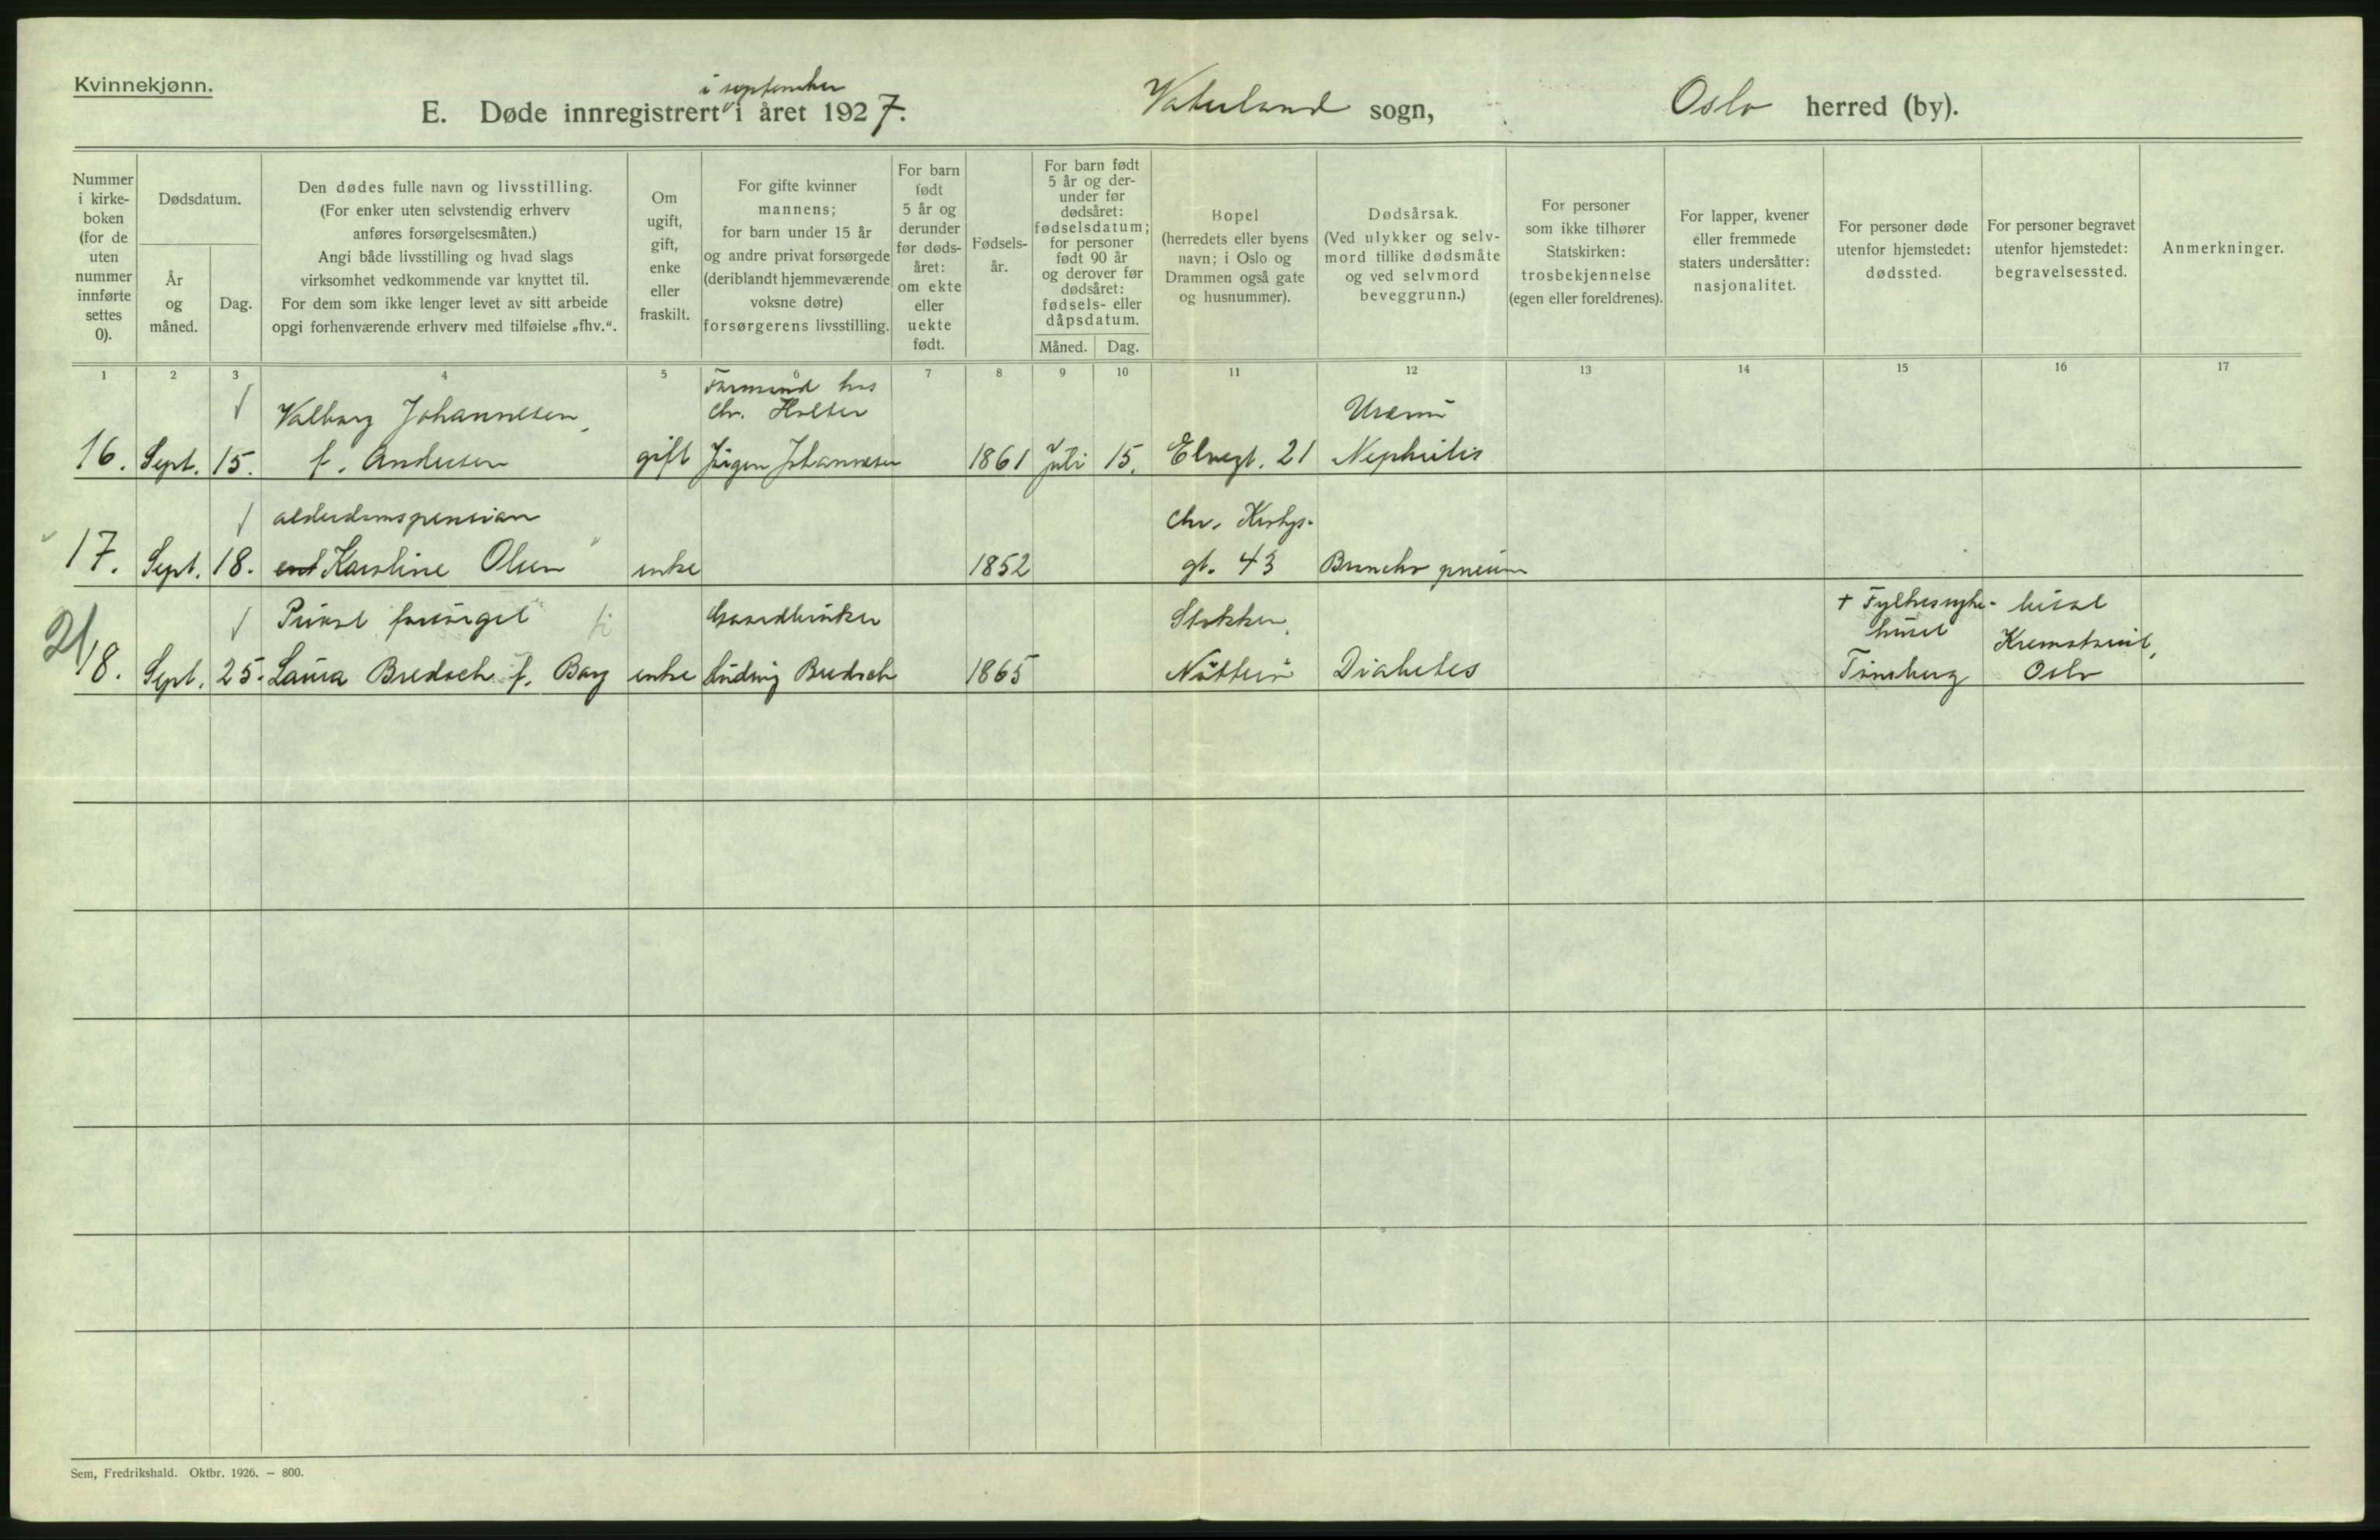 Kvinnekjønn.
i september
E. Døde innregistrert i året 1927. Vaterland sogn, Oslo herred (by).
Nummer i kirke-boken (for de uten nummer innførte settes 0).
Dødsdatum.
År og måned.
Dag.
Den dødes fulle navn og livsstilling.
(For enker uten selvstendig erhverv
anføres forsørgelsesmåten.)
Angi både livsstilling og hvad slags
virksomhet vedkommende var knyttet til.
For dem som ikke lenger levet av sitt arbeide
opgi forhenværende erhverv med tilføielse „fhv.“.
Om ugift, gift, enke eller fraskilt.
For gifte kvinner
mannens;
for barn under 15 år
og andre privat forsørgede
(deriblandt hjemmeværende
voksne døtre)
forsørgerens livsstilling.
For barn født 5 år og derunder før døds-året: om ekte eller uekte født.
Fødsels-år.
For barn født
5 år og der-
under før
dødsåret:
fødselsdatum;
for personer
født 90 år
og derover før
dødsåret:
fødsels- eller
dåpsdatum.
Måned. Dag.
Bopel
(herredets eller byens
navn; i Oslo og
Drammen også gate
og husnummer).
Dødsårsak.
(Ved ulykker og selv-
mord tillike dødsmåte
og ved selvmord
beveggrunn.)
For personer
som ikke tilhører
Statskirken:
trosbekjennelse
(egen eller foreldrenes).
For lapper, kvener
eller fremmede
staters undersåtter:
nasjonalitet.
For personer døde
utenfor hjemstedet:
dødssted.
For personer begravet
utenfor hjemstedet:
begravelsessted.
Anmerkninger.
1 2 3 4 5 6 7 8 9 10 11 12 13 14 15 16 17
Formand hos
Valborg Johannesen, Chr. Holter Uremi
16. Sept. 15. f. Andersen gift Jørgen Johannesen 1861 Juli 15. Elvegt. 21 Nephritis
alderdomspension Chr. Krohgs-
17. Sept. 18. Karoline Olsen enke 1852 gt. 43 Broncho pneum
21
Privat forsørget Gaardbruker Stokken, + Fylkessyke-
huset
18. Sept. 25. Laura Bredoch f. Borg enke Ludvig Bredoch 1865 Nøtterø Diabetes Tønsberg
Krematoriet,
Oslo
Sem, Fredrikshald. Oktbr. 1926. — 800.